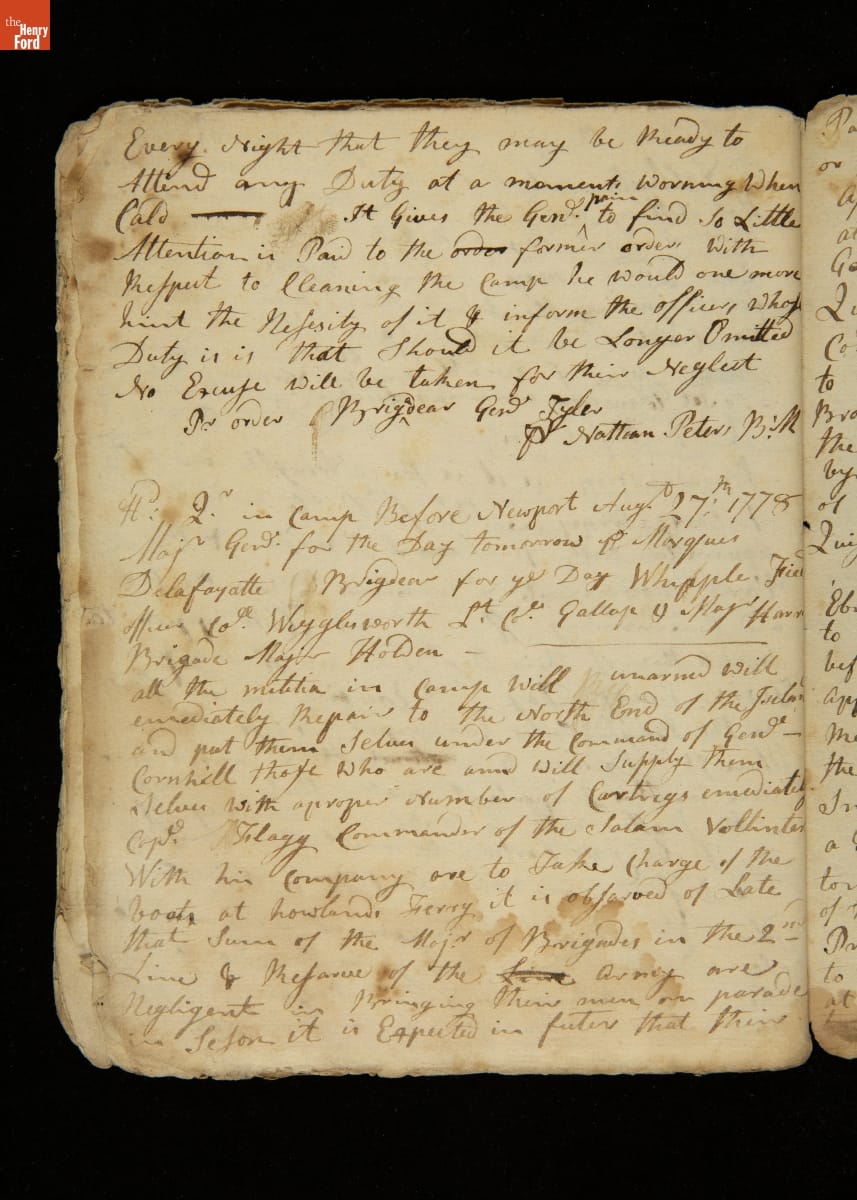 the
Henry
Ford
Every Night that they may be Ready to
Attend any Duty at a moments Worning When
Cald It Gives the Genl. pain to find so Little
Attention is Paid to the order former orders With
Respect to Cleaning the Camp he would one more
hint the Nesesity of it & inform the officers whose
Duty is is that Should it be Longer Omitted
No Excuse will be taken for their Neglect
Pr order Brigdear Genl Tyler
Nathan Peters B: M
Hd: Qr in Camp Before Newport Augt 27th 1778
Majr Genl. for the Day tomorrow Marques
Delafayatte Brigdear for ye Day Whipple Fiel
officer Coll Wigglesworth Lt. Col. Gallup & Majr Harr
Brigade Major Holden
all the militia in Camp Will unarmed will
emediately Repair to the North End of the Iselan
and put them Selves under the Command of Genl
Cornhill those Who are amd will Supply them
Selves with aproper Number of Cartrigs emediately
Capt. Flagg Commander of the Salam Vollinter
With his Company are to Take Charge of the
boats at howlands Ferry it is observed of Late
that Sum of the Majr of Brigades in the 2nd
Line & Resarve of the Line Army are
Negligent in Bringing their men on parade
in Seson it is Expected in futer that their
or
at
to
the
by
of
to
bef
the
In
a
of
to
at